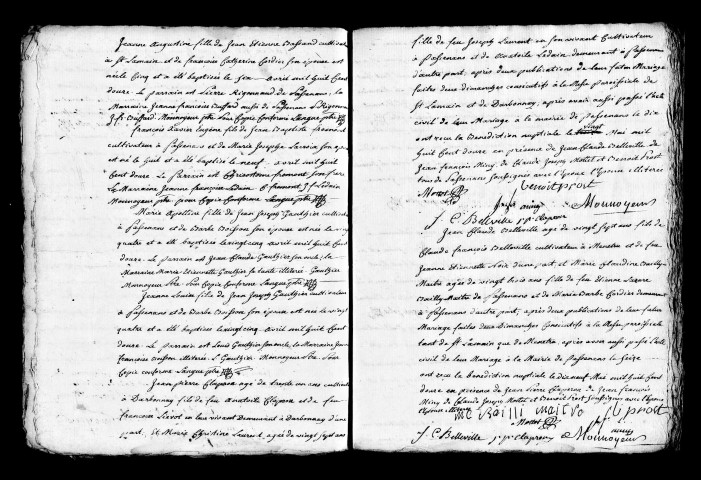 Jeanne Augustine fille de Jean Etienne Bassand cultivateur
à St Lamain et de francoise Catherine Cordier son épouse est
née le Cinq et a été baptisée le Six avril mil huit Cent
douze. Le parrain est Pierre Rigennaud de Passenans, la
Marraine Jeanne francoise Buffard aussi de Passenans
Monnoyeur ptre pour Copie Conforme
francois Xavier Eugène fils de Jean Baptiste fromont
cultivateur à Passenans et de Marie Josephe Lavoix son épouse
est né le huit et a été baptisé le neuf avril mil huit
Cent douze. Le Parrain est fromont son frère
Le Marraine Jeanne francoise Ledain fromont J f Ledain
Monnoyeur ptre pour Copie Conforme
Marie Apolline fille de Jean Joseph Gauthier cultivateur
à Passenans et de Barbe Boisson son épouse est née le vingt
quatre et a été baptisée le vingt cinq avril mil huit Cent
douze. Le parrain est Jean Claude Gauthier son oncle, la
Marraine Marie Etiennette Gauthier sa tante illiterée. Gauthier
Monnoyeur Ptre pour Copie Conforme
Jeanne Louise fille de Jean Joseph Gauthier cultivateur
à Passenans et de Barbe Boisson son épouse est née le vingt
quatre et a été baptisée le vingt cinq avril mil huit Cent
douze. Le parrain est Louis Gauthier son oncle, la Marraine Jeanne
francoise Boisson illiterée. L Gauthier. Monnoyeur Ptre Pour
Copie conforme
Jean pierre Claperon agé de trente un ans cultivateur
à Darbonnay fils de feu Anatoile Claperon et de feu
francoise Lievot en leur vivant Demeurant à Darbonnay d'une
part, Et Marie Christine Laurent, agée de vingt sept ans
fille de feu Joseph Laurent en son vivant Cultivateur
à Passenans et de Anatoile Ledain demeurant à Passenans
d'autre part, après deux publications de leur futur Mariage
faites deux dimanches consécutifs à la Messe paroissiale de
St Lamain et de Darbonnay, après avoir aussi passé l'acte
civil de leur Mariage à la mairie de Passenans le dix
ont reçu la Bénédiction nuptiale le vingt Mai mil
huit Cent douze en présence de Jean Claude Belleville, de
Jean francois Miny, de Claude Joseph Mottet et Benoit Prost
tous de Passenans soussignés avec l'époux l'épouse illiterée
Mottet
benoit prost
Monnoyeur
J. C. Belleville
Jean Claude Belleville agé de vingt sept ans fils de
Claude francois Belleville cultivateur à Menetru et de feu
Jeanne Etiennette Noir d'une part, et Marie Claudine Bailly
Maitre agée de vingt trois ans fille de feu Etienne
Bailly Maitre de Passenans et de Marie Barbe Cordier demeurant
à Passenans d'autre part, après deux publications de leur futur
Mariage faites deux Dimanches Consécutifs à la Messe paroissiale
tant de St Lamain que de Menetru, après avoir aussi passé l'acte
civil de leur Mariage à la Mairie de Passenans le Seize
ont reçu la bénédiction nuptiale le dix neuf Mai mil huit Cent
douze en présence de Jean pierre Claperon, de Jean francois
Miny, de Claude Joseph Mottet et Benoit Prost soussignés avec l'époux
l'épouse
mc Bailli maitre
prost
Mottet
J. C. Belleville
Monnoyeur